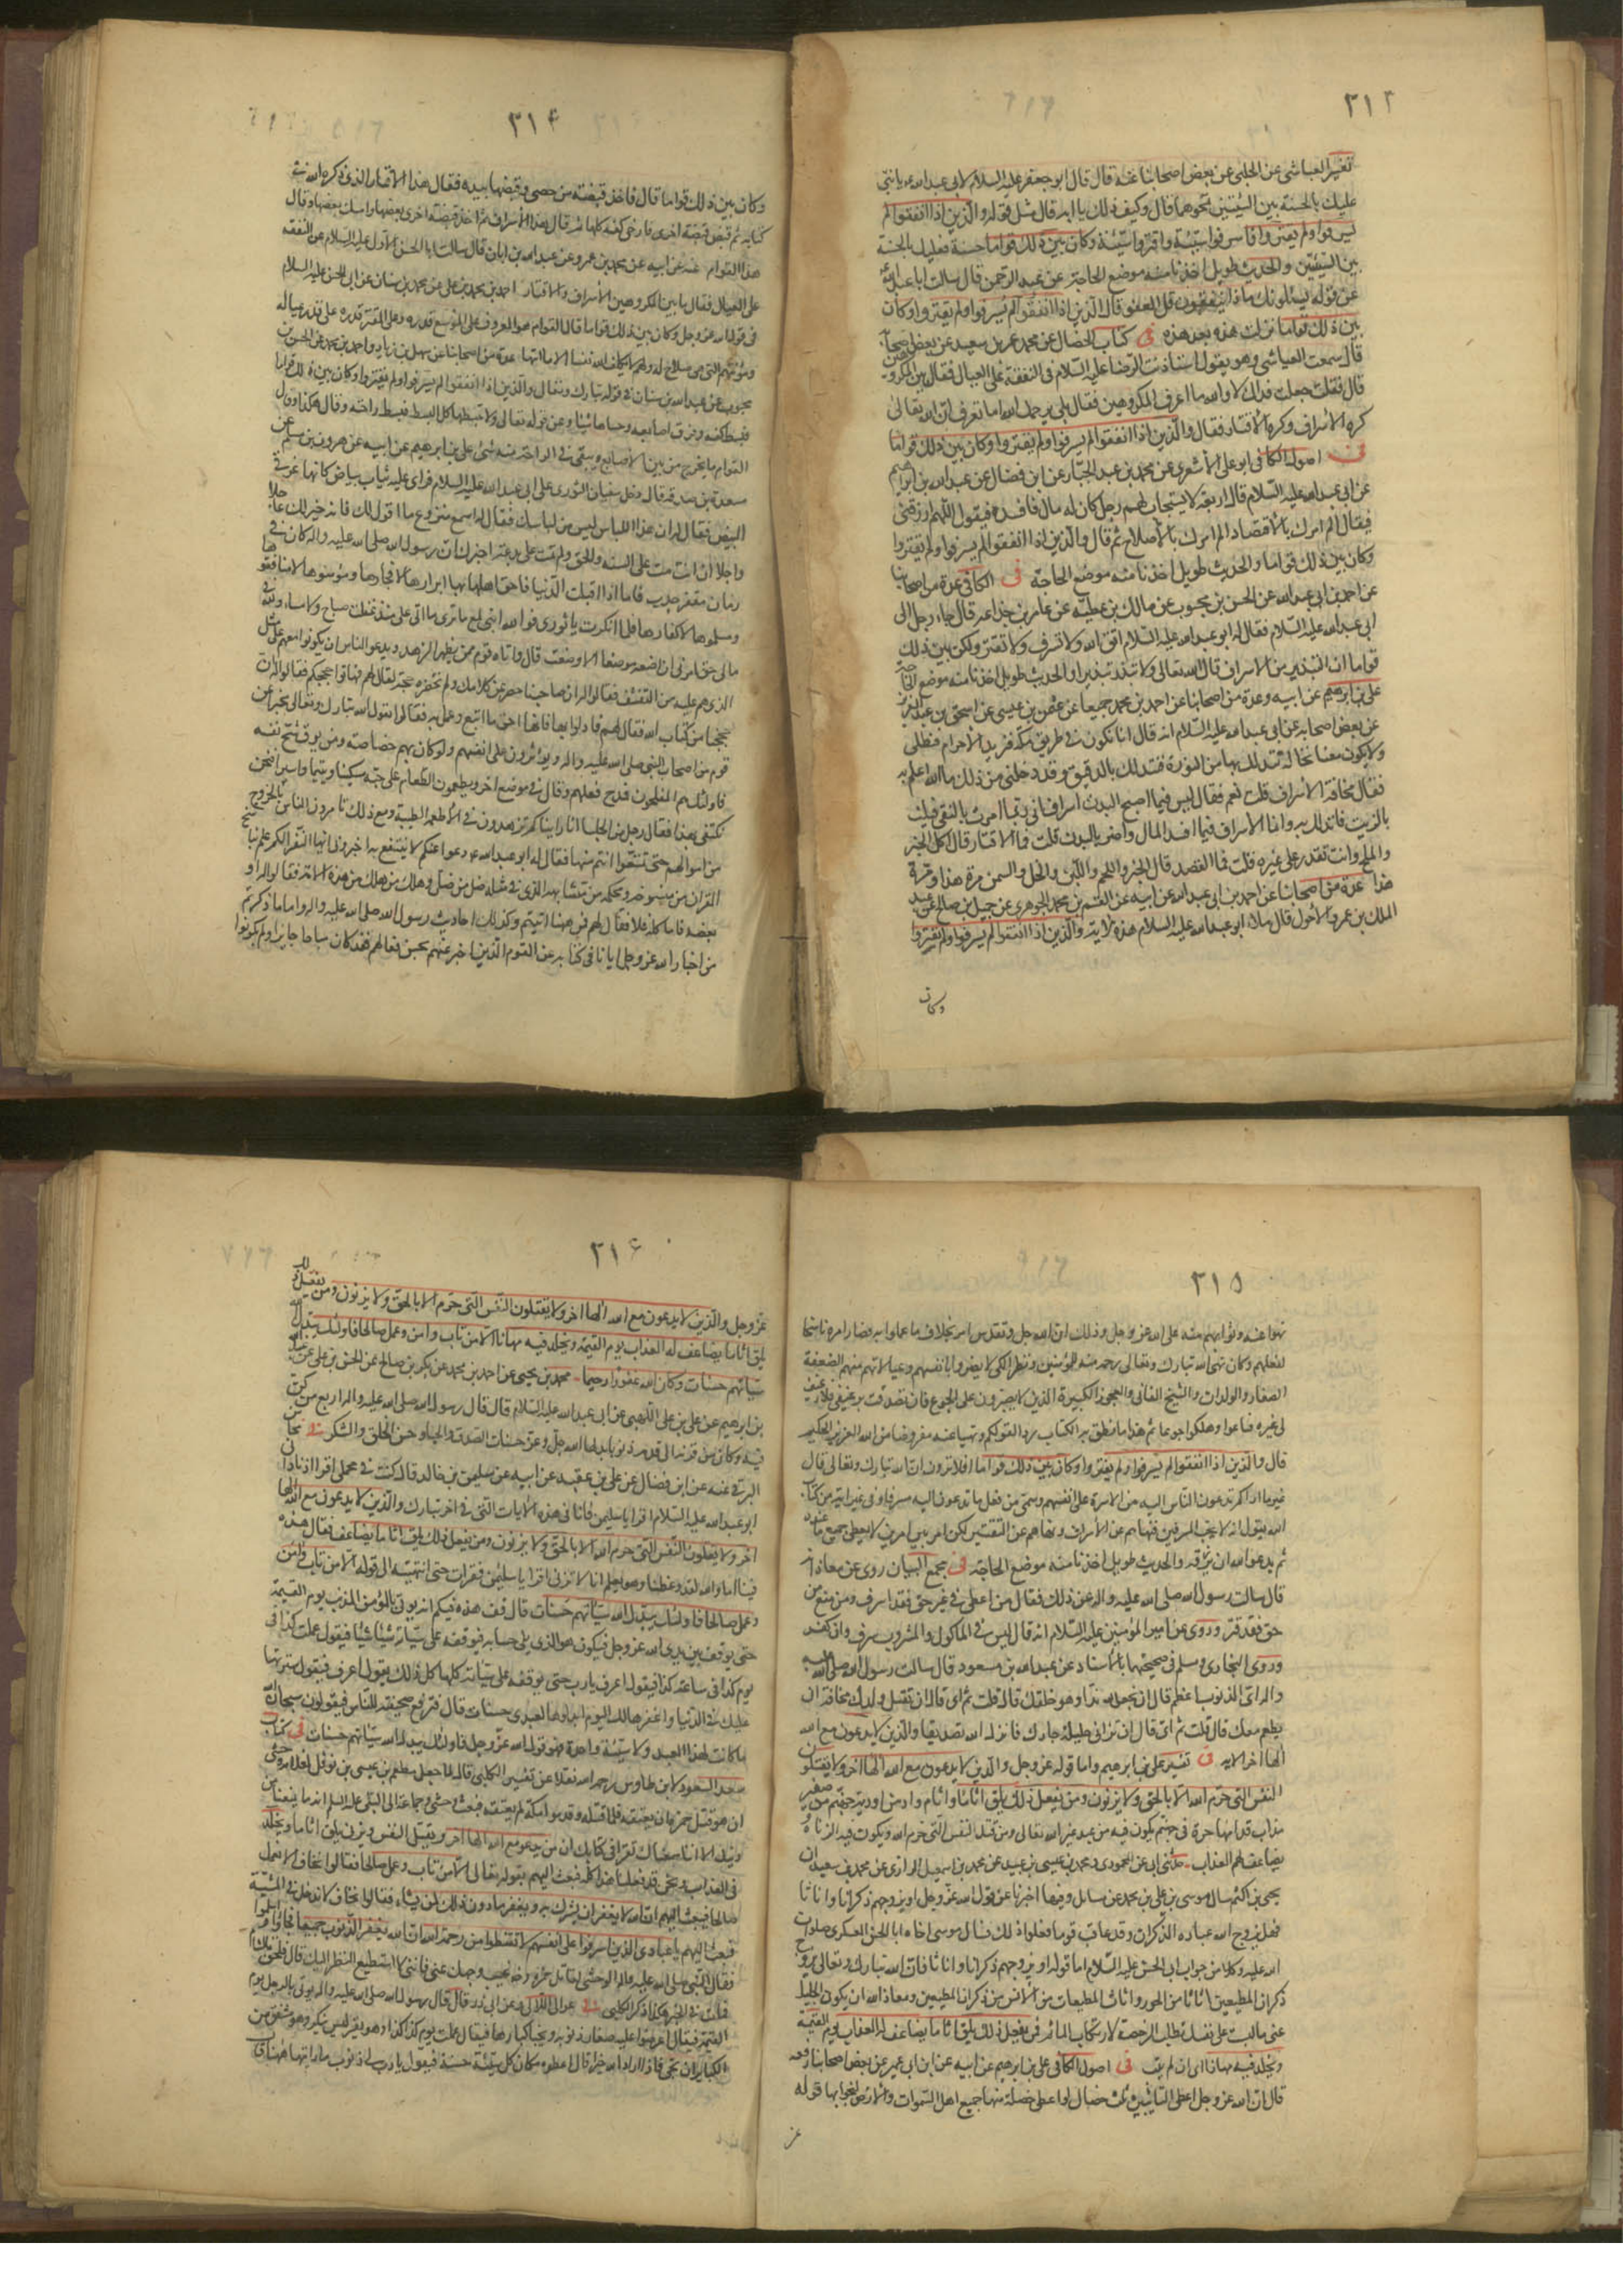 ٣١٣
تفسير العياشى عن الحلبى عن بعض اصحابنا عنه قال قال ابو جعفر عليه السلام لابى عبد الله ع يا بنى
عليك بالحسنة بين السيئتين تمحوهما قال وكيف ذلك يا ابه قال مثل قوله والذين اذا انفقوا لم
يسرفوا ولم يقتروا فاسرفوا سيئة واقتروا سيئة وكان بين ذلك قواما حسنة فعليك بالحسنة
بين السيئتين والحديث طويل اخذنا منه موضع الحاجة عن عبد الرحمن قال سالت ابا عبد الله ع
عن قوله يسئلونك ماذا ينفقون قل العفو قال الذين اذا انفقوا لم يسرفوا ولم يقتروا وكان
بين ذلك قواما نزلت هذه بعد هذه فى كتاب الخصال عن محمد بن عمرو بن سعيد عن بعض اصحابه
قال سمعت العياشى وهو يقول استاذنت الرضا عليه السلام فى النفقة على العيال فقال بين المكروهين
قال فقلت جعلت فداك لا والله ما اعرف المكروهين فقال بلى يرحمك الله اما تعرف ان الله تعالى
كره الاسراف وكره الاقتار فقال والذين اذا انفقوا لم يسرفوا ولم يقتروا وكان بين ذلك قواما
فى اصول الكافى ابو على الاشعرى عن محمد بن عبد الجبار عن ابن فضال عن عبد الله بن ابراهيم
عن ابى عبد الله عليه السلام قال اربعة لا يستجاب لهم رجل كان له مال فافسده فيقول اللهم ارزقنى
فيقال الم امرك بالاقتصاد الم امرك بالاصلاح ثم قال والذين اذا انفقوا لم يسرفوا ولم يقتروا
وكان بين ذلك قواما والحديث طويل اخذنا منه موضع الحاجة فى الكافى عدة من اصحابنا
عن احمد بن ابى عبد الله عن الحسن بن محبوب عن مالك بن عطية عن عامر بن جذاعه قال جاء رجل الى
ابى عبد الله عليه السلام فقال له ابو عبد الله عليه السلام اتق الله ولا تسرف ولا تقتر ولكن بين ذلك
قواما ان التبذير من الاسراف قال الله تعالى ولا تبذر تبذيرا والحديث طويل اخذنا منه موضع الحاجة
على بن ابراهيم عن ابيه وعدة من اصحابنا عن احمد بن محمد جميعا عن عثمن بن عيسى عن اسحق بن عبد العزيز
عن بعض اصحابه عن ابى عبد الله عليه السلام انه قال انا نكون فى طريق مكة فنريد الاحرام فنطلى
ولا يكون معنا نخالة نتدلك بها من النورة فنتدلك بالدقيق وقد دخلنى من ذلك ما الله اعلم به
فقال مخافة الاسراف قلت نعم فقال ليس فيما اصلح البدن اسراف انى ربما امرت بالنقى فيلت
بالزيت فاتدلك به وانما الاسراف فيما افسد المال واضر بالبدن قلت فما الاقتار قال اكل الخبز
والملح وانت تقدر على غيره قلت فما القصد قال الخبز واللحم واللبن والخل والسمن مرة هذا ومرة
هذا عدة من اصحابنا عن احمد بن ابى عبد الله عن ابيه عن القسم بن محمد الجوهرى عن جميل بن صالح عن عبد
الملك بن عمرو الاحول قال تلا ابو عبد الله عليه السلام هذه الاية والذين اذا انفقوا لم يسرفوا ولم يقتروا
وكان
٣١٤
وكان بين ذلك قواما قال فاخذ قبضة من حصى وقبضها بيده فقال هذا الاقتار الذى ذكره الله فى
كتابه ثم قبض قبضة اخرى فارخى كفه كلها ثم قال هذا الاسراف ثم اخذ قبضة اخرى فارخى بعضها وامسك بعضها وقال
هذا القوام عنه عن ابيه عن محمد بن عمرو عن عبد الله بن ابان قال سالت ابا الحسن الاول عليه السلام عن النفقة
على العيال فقال ما بين المكروهين الاسراف والاقتار احمد بن محمد بن على عن محمد بن سنان عن ابى الحسن عليه السلام
فى قول الله عز وجل وكان بين ذلك قواما قال القوام هو المعروف على الموسع قدره وعلى المقتر قدره على قدر عياله
ومؤنتهم التى هى صلاح له ولهم لا يكلف الله نفسا الا ما اتيها عدة من اصحابنا عن سهل بن زياد واحمد بن محمد عن الحسن بن
محبوب عن عبد الله بن سنان فى قوله تبارك وتعالى والذين اذا انفقوا لم يسرفوا ولم يقتروا وكان بين ذلك قواما
فبسط كفه وفرق اصابعه وحناها شيئا وعن قوله تعالى ولا تبسطها كل البسط فبسط راحته وقال هكذا وقال
القوام ما يخرج من بين الاصابع ويبقى فى الراحة منه شئ على بن ابرهيم عن ابيه عن هرون بن مسلم عن
مسعدة بن صدقه قال دخل سفيان الثورى على ابى عبد الله عليه السلام فراى عليه ثياب بياض كانها غرقئ
البيض فقال له ان هذا اللباس ليس من لباسك فقال له اسمع منى وع ما اقول لك فانه خير لك عاجلا
واجلا ان انت مت على السنة والحق ولم تمت على بدعة اخبرك ان رسول الله صلى الله عليه واله كان فى
زمان مقفر جدب فاما اذا اقبلت الدنيا فاحق اهلها بها ابرارها لا فجارها ومؤمنوها لا منافقوها
ومسلموها لا كفارها فما انكرت يا ثورى فوالله اننى لمع ما ترى ما اتى على منذ عقلت صباح ولا مساء ولله فى
مالى حق امرنى ان اضعه موضعا الا وضعته قال واتاه قوم ممن يظهر الزهد ويدعو الناس ان يكونوا معهم على مثل
الذى هم عليه من التقشف فقالوا له ان صاحبنا حصر عن كلامك ولم تحضره حجة فقال لهم فهاتوا حججكم فقالوا له ان
حججنا من كتاب الله فقال لهم فادلوا بها فانها احق ما اتبع وعمل به فقالوا يقول الله تبارك وتعالى يخبر عن
قوم من اصحاب النبى صلى الله عليه واله ويؤثرون على انفسهم ولو كان بهم خصاصة ومن يوق شح نفسه
فاولئك هم المفلحون فمدح فعلهم وقال فى موضع اخر ويطعمون الطعام على حبه مسكينا ويتيما واسيرا فنحن
نكتفى بهذا فقال رجل من الجلسا انا رايناكم تزهدون فى الاطعمة الطيبة ومع ذلك تامرون الناس بالخروج
من اموالهم حتى تتمتعوا انتم منها فقال له ابو عبد الله ع دعوا عنكم لا ينتفع به اخبرونى ايها النفر الكم علم بناسخ
القران من منسوخه ومحكمه من متشابهه الذى فى مثله ضل من ضل وهلك من هلك من هذه الامة فقالوا له او
بعضه فاما كله فلا فقال لهم فمن هنا اتيتم وكذلك احاديث رسول الله صلى الله عليه واله واما ما ذكرتم
من اخبار الله عز وجل ايانا فى كتابه عن القوم الذين اخبر عنهم بحسن فعالهم فقد كان مباحا جايزا ولم يكونوا
٣١٥
نهوا عنه وثوابهم منه على الله عز وجل وذلك ان الله جل وتقدس امر بخلاف ما عملوا به فصار امره ناسخا
لفعلهم وكان نهى الله تبارك وتعالى رحمة منه للمؤمنين ونظرا لكى لا يضروا بانفسهم وعيالاتهم منهم الضعفة
الصغار والولدان والشيخ الفانى والعجوز الكبيرة الذين لا يصبرون على الجوع فان تصدقت برغيفى ولا رغيف
لى غيره ضاعوا وهلكوا جوعا ثم هذا ما نطق به الكتاب ردا لقولكم ونهيا عنه مفروضا من الله العزيز الحكيم
قال والذين اذا انفقوا لم يسرفوا ولم يقتروا وكان بين ذلك قواما افلا ترون ان الله تبارك وتعالى قال
غير ما اراكم تدعون الناس اليه من الاثرة على انفسهم وسمى من فعل ما تدعون اليه مسرفا وفى غير اية من كتاب
الله يقول انه لا يحب المسرفين فنهاهم عن الاسراف ونهاهم عن التقتير لكن امر بين امرين لا يعطى جميع ما عنده
ثم يدعو الله ان يرزقه والحديث طويل اخذنا منه موضع الحاجة فى مجمع البيان روى عن معاذ انه
قال سالت رسول الله صلى الله عليه واله عن ذلك فقال من اعطى فى غير حق فقد اسرف ومن منع من
حق فقد قتر وروى عن امير المؤمنين عليه السلام انه قال ليس فى الماكول والمشروب سرف وان كثر
وروى البخارى ومسلم فى صحيحيهما بالاسناد عن عبد الله بن مسعود قال سالت رسول الله صلى الله عليه
واله اى الذنوب اعظم قال ان تجعل لله ندا وهو خلقك قال قلت ثم اى قال ان تقتل ولدك مخافة ان
يطعم معك قال قلت ثم اى قال ان تزانى حليلة جارك فانزل الله تصديقها والذين لا يدعون مع الله
الها اخر الاية فى تفسير على بن ابرهيم واما قوله عز وجل والذين لا يدعون مع الله الها اخر ولا يقتلون
النفس التى حرم الله الا بالحق ولا يزنون ومن يفعل ذلك يلق اثاما واثام واد من اودية جهنم من صفر
مذاب قدامها حرة فى جهنم يكون فيه من عبد غير الله تعالى ومن قتل النفس التى حرم الله ويكون فيه الزناة
يضاعف لهم العذاب حدثنى ابى عن المحمودى ومحمد بن عيسى بن عبيد عن محمد بن اسمعيل الرازى عن محمد بن سعيد ان
يحيى بن اكثم سال موسى بن على بن محمد عن مسائل وفيها اخبرنا عن قول الله عز وجل او يزوجهم ذكرانا واناثا
فهل يزوج الله عباده الذكران وقد عاقب قوما فعلوا ذلك فسال موسى اخاه ابا الحسن العسكرى صلوات
الله عليه وكان من جواب ابى الحسن عليه السلام اما قوله او يزوجهم ذكرانا واناثا فان الله تبارك وتعالى يزوج
ذكران المطيعين اناثا من الحور واناث المطيعات من الانس من ذكران المطيعين ومعاذ الله ان يكون الجليل
عنى ما لبست على نفسك تطلب الرخصة لارتكاب المآثم فمن يفعل ذلك يلق اثاما يضاعف له العذاب يوم القيمة
ويخلد فيه مهانا اى ان لم يتب فى اصول الكافى على بن ابرهيم عن ابيه عن ابن ابى عمير عن بعض اصحابنا رفعه
قال ان الله عز وجل اعطى التائبين ثلث خصال لو اعطى خصلة منها جميع اهل السموات والارض لنجوا بها قوله
عز
٣١٦
عز وجل والذين لا يدعون مع الله الها اخر ولا يقتلون النفس التى حرم الله الا بالحق ولا يزنون ومن يفعل ذلك
يلق اثاما يضاعف له العذاب يوم القيمة ويخلد فيه مهانا الا من تاب وامن وعمل صالحا فاولئك يبدل الله
سيئاتهم حسنات وكان الله غفورا رحيما محمد بن يحيى عن احمد بن محمد عن بكر بن صالح عن الحسن بن على عن عبد الله
بن ابرهيم عن على بن على اللهبى عن ابى عبد الله عليه السلام قال قال رسول الله صلى الله عليه واله اربع من كن
فيه وكان من قرنه الى قدمه ذنوبا بدلها الله جل وعز حسنات الصدق والحياء وحسن الخلق والشكر فى محاسن
البرقى عنه عن ابن فضال عن على بن عقبه عن ابيه عن سليمن بن خالد قال كنت فى محملى اقرا اذ نادانى
ابو عبد الله عليه السلام اقرا يا سليمن فانا فى هذه الايات التى فى اخر تبارك والذين لا يدعون مع الله الها
اخر ولا يقتلون النفس التى حرم الله الا بالحق ولا يزنون ومن يفعل ذلك يلق اثاما يضاعف فقال هذه
فينا اما والله لقد وعظنا وهو يعلم انا لا نزنى اقرا يا سليمن فقرات حتى انتهيت الى قوله الا من تاب وامن
وعمل صالحا فاولئك يبدل الله سيئاتهم حسنات قال قف هذه فيكم انه يؤتى بالمؤمن المذنب يوم القيمة
حتى يوقف بين يدى الله عز وجل فيكون هو الذى يلى حسابه فيوقفه على سيئاته شيئا شيئا فيقول عملت كذا فى
يوم كذا فى ساعة كذا فيقول اعرف يا رب حتى يوقفه على سيئاته كلها كل ذلك يقول اعرف فيقول سترتها
عليك فى الدنيا واغفرها لك اليوم ابدلوها لعبدى حسنات قال فترفع صحيفته للناس فيقولون سبحان الله
ما كانت لهذا العبد ولا سيئة واحدة فهو قول الله عز وجل فاولئك يبدل الله سيئاتهم حسنات فى كتاب
سعد السعود لابن طاوس رحمه الله نقلا عن تفسير الكلبى قال لما جعل مطعم بن عدى بن نوفل لغلامه وحشى
ان هو قتل حمزه ان يعتقه فلما قتله وقدموا مكة لم يعتقه فبعث وحشى وجماعة الى النبى عليه السلم انه ما يمنعنا من
دينك الا اننا سمعناك تقرا فى كتابك ان من يدعو مع الله الها اخر ويقتل النفس ويزنى يلق اثاما ويخلد
فى العذاب ونحن قد فعلنا هذا كله فبعث اليهم بقوله تعالى الا من تاب وامن وعمل صالحا فقالوا نخاف الا نعمل
صالحا فبعث اليهم ان الله لا يغفر ان يشرك به ويغفر ما دون ذلك لمن يشاء فقالوا نخاف الا ندخل فى المشية
فبعث اليهم يا عبادى الذين اسرفوا على انفسهم لا تقنطوا من رحمة الله ان الله يغفر الذنوب جميعا فجاؤا واسلموا
فقال النبى صلى الله عليه واله لوحشى قاتل حمزه رضه غيب وجهك عنى فاننى لا استطيع النظر اليك قال فلحق بالشام
فمات فى الخمر هكذا ذكر الكلبى فى عوالى اللالى وعن ابى ذر قال قال رسول الله صلى الله عليه واله يؤتى بالرجل يوم
القيمة فيقال اعرضوا عليه صغار ذنوبه ويخبا كبارها فيقال عملت يوم كذا كذا وكذا وهو يقر ليس ينكر وهو مشفق من
الكباير ان تجئ فاذا اراد الله خيرا قال اعطوه مكان كل سيئة حسنة فيقول يا رب لى ذنوب ما رايتها ههنا قال